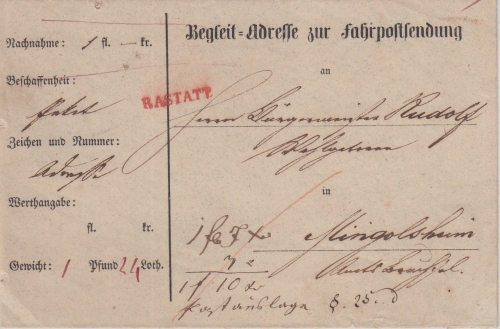 Begleit-Adresse zur Fahrpostsendung
Nachnahme: 1 fl. — kr.
an
Beschaffenheit:
RASTATT
Paket
Herrn Bürgermeister Rudolf
Zeichen und Nummer:
Wohlgeboren
Adresse
Werthangabe:
in
fl. kr.
1 f 7 x
Mingolsheim
Gewicht: 1 Pfund 24 Loth.
3 x
Amts Bruchsal.
1 f 10 x
Postauslage